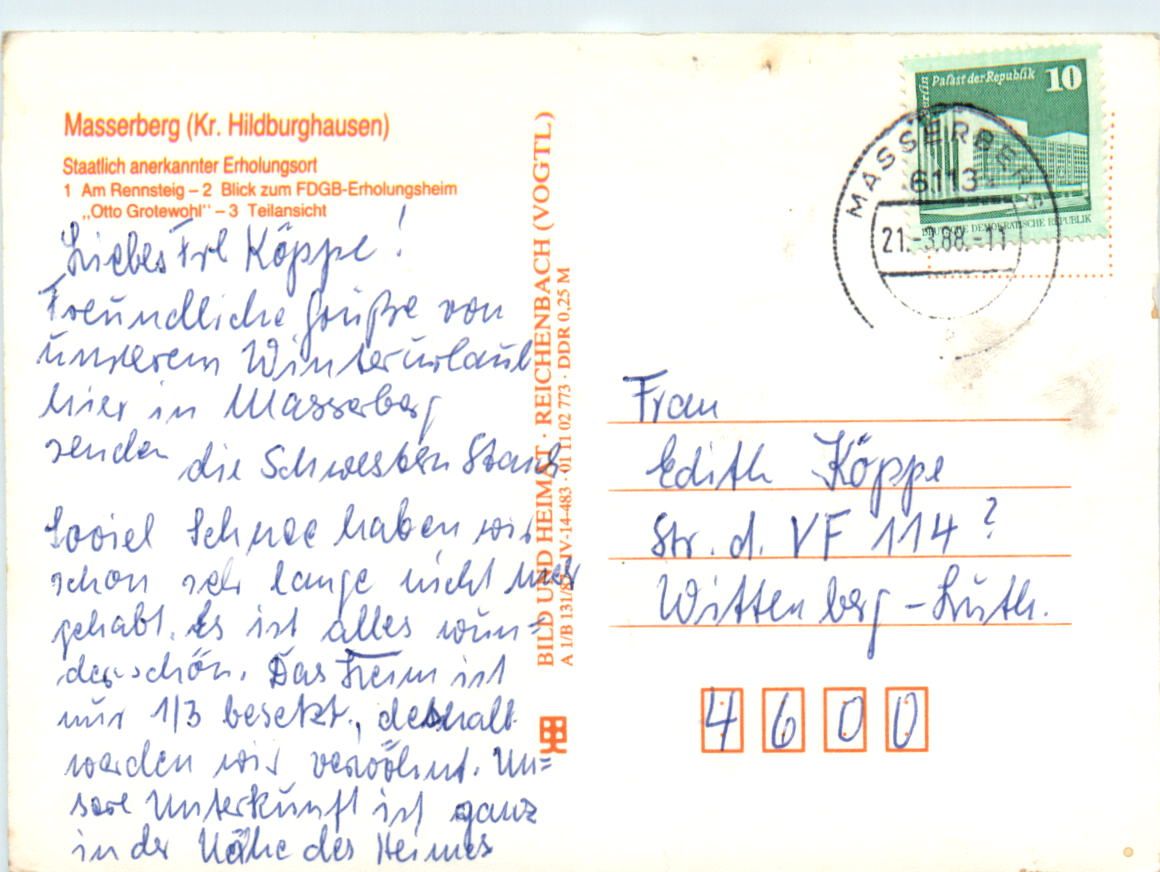 Masserberg (Kr. Hildburghausen)
Staatlich anerkannter Erholungsort
1 Am Rennsteig – 2 Blick zum FDGB-Erholungsheim
„Otto Grotewohl" – 3 Teilansicht
Liebes Frl Köppe!
Freundliche Grüße von
unserem Winterurlaub
hier in Masserberg
senden die Schwestern
Soviel Schnee haben wir
schon sehr lange nicht mehr
gehabt. Es ist alles wun=
derschön. Das Heim ist
nur 1/3 besetzt, deshalb
werden wir verwöhnt. Un=
sere Unterkunft ist ganz
in der Nähe des Heimes
BILD UND HEIMAT · REICHENBACH (VOGTL)
A 1/B 131/87 IV-14-483 · 01 11 02 773 · DDR 0,25 M
Berlin Palast der Republik 10
DEUTSCHE DEMOKRATISCHE REPUBLIK
MASSERBERG
6113
21.-3.88.-11
Frau
Edith Köppe
Str. d. VF 114 ?
Wittenberg - Luth.
4600